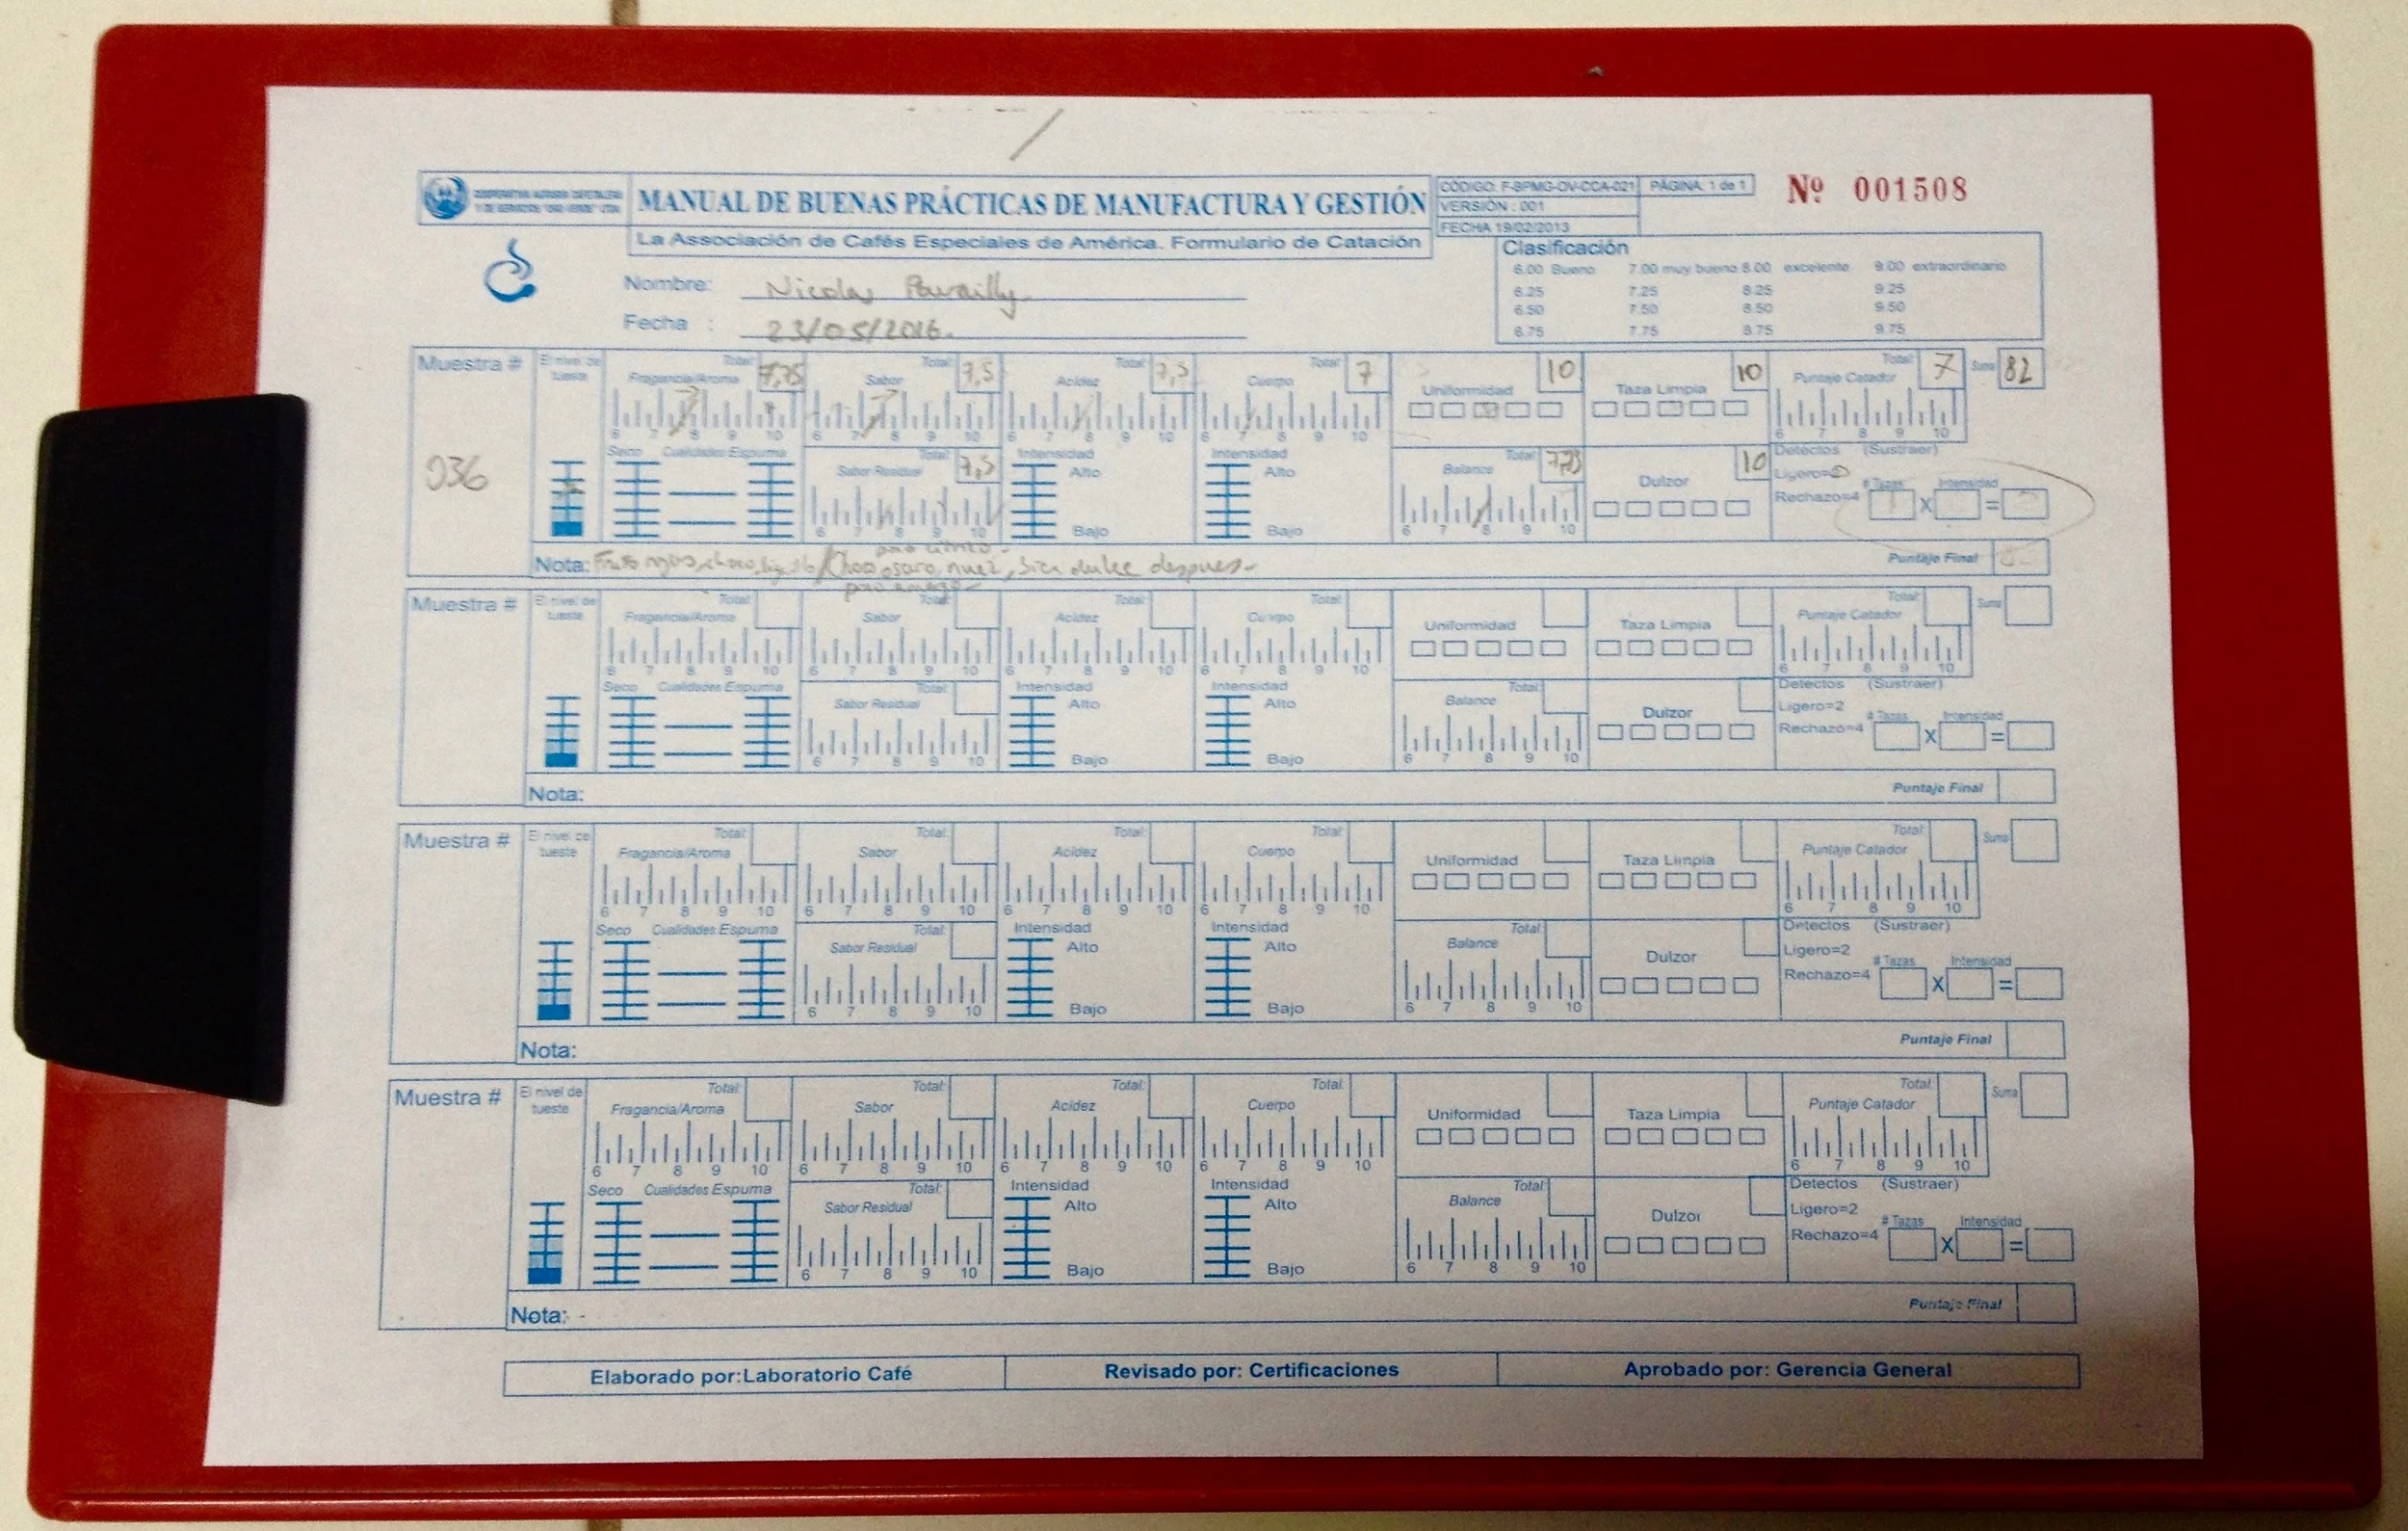 COOPERATIVA AGRARIA CAFETALERA
Y DE SERVICIOS "ORO VERDE" LTDA.
MANUAL DE BUENAS PRÁCTICAS DE MANUFACTURA Y GESTIÓN
CÓDIGO: F-BPMG-OV-CCA-021 PÁGINA: 1 de 1
VERSIÓN : 001
FECHA 19/02/2013
Nº 001508
La Associación de Cafés Especiales de América. Formulario de Catación
Clasificación
6.00 Bueno 7.00 muy bueno 8.00 excelente 9.00 extraordinario
6.25 7.25 8.25 9.25
6.50 7.50 8.50 9.50
6.75 7.75 8.75 9.75
Nombre: Nicolas
Fecha : 23/05/2016.
Muestra # El nivel de tueste Fragancia/Aroma Total: 7,75 Sabor Total: 7,5 Acidez Total: 7,5 Cuerpo Total: 7 Uniformidad 10 Taza Limpia 10 Puntaje Catador Total: 7 Suma 82
6 7 8 9 10 6 7 8 9 10 6 7 8 9 10 6 7 8 9 10 6 7 8 9 10
036
Seco Cualidades Espuma Sabor Residual Total: 7,5 Intensidad Alto Bajo Intensidad Alto Bajo Balance Total: 7,75 Dulzor 10 Defectos (Sustraer)
Ligero=2
Rechazo=4 # Tazas X Intensidad =
6 7 8 9 10 6 7 8 9 10
Nota: nuez, bien dulce despues Puntaje Final
Muestra # El nivel de tueste Fragancia/Aroma Total: Sabor Total: Acidez Total: Cuerpo Total: Uniformidad Taza Limpia Puntaje Catador Total: Suma
6 7 8 9 10 6 7 8 9 10 6 7 8 9 10 6 7 8 9 10 6 7 8 9 10
Seco Cualidades Espuma Sabor Residual Total: Intensidad Alto Bajo Intensidad Alto Bajo Balance Total: Dulzor Defectos (Sustraer)
Ligero=2
Rechazo=4 # Tazas X Intensidad =
6 7 8 9 10 6 7 8 9 10
Nota: Puntaje Final
Muestra # El nivel de tueste Fragancia/Aroma Total: Sabor Total: Acidez Total: Cuerpo Total: Uniformidad Taza Limpia Puntaje Catador Total: Suma
6 7 8 9 10 6 7 8 9 10 6 7 8 9 10 6 7 8 9 10 6 7 8 9 10
Seco Cualidades Espuma Sabor Residual Total: Intensidad Alto Bajo Intensidad Alto Bajo Balance Total: Dulzor Defectos (Sustraer)
Ligero=2
Rechazo=4 # Tazas X Intensidad =
6 7 8 9 10 6 7 8 9 10
Nota: Puntaje Final
Muestra # El nivel de tueste Fragancia/Aroma Total: Sabor Total: Acidez Total: Cuerpo Total: Uniformidad Taza Limpia Puntaje Catador Total: Suma
6 7 8 9 10 6 7 8 9 10 6 7 8 9 10 6 7 8 9 10 6 7 8 9 10
Seco Cualidades Espuma Sabor Residual Total: Intensidad Alto Bajo Intensidad Alto Bajo Balance Total: Dulzor Defectos (Sustraer)
Ligero=2
Rechazo=4 # Tazas X Intensidad =
6 7 8 9 10 6 7 8 9 10
Nota: Puntaje Final
Elaborado por:Laboratorio Café Revisado por: Certificaciones Aprobado por: Gerencia General